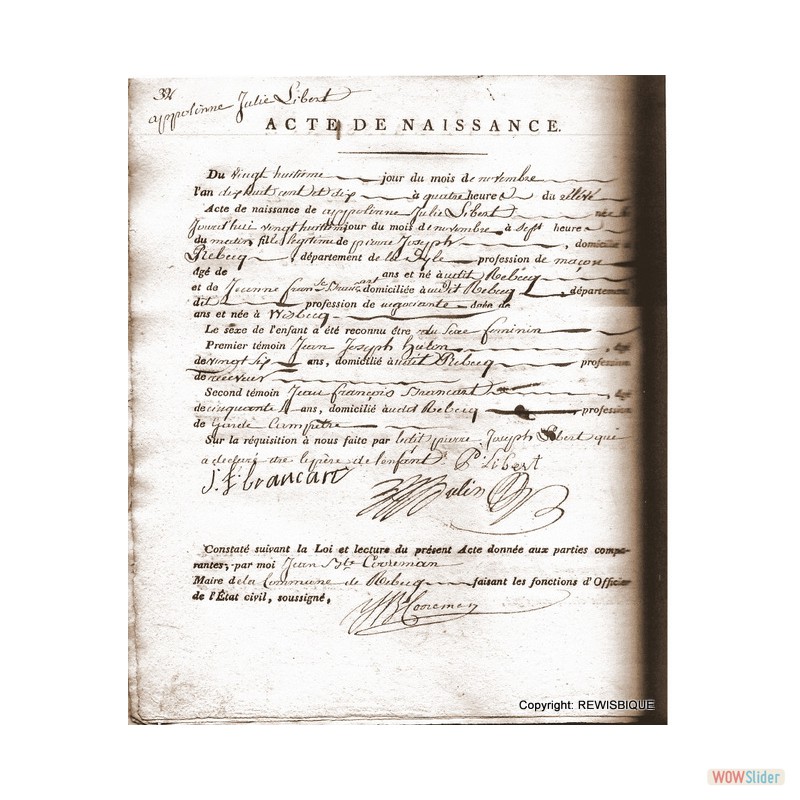 32
appolinne Julie Libert
ACTE DE NAISSANCE.
Du vingt huitieme jour du mois de novembre
l'an dix huit cent et dix à quatre heures du
Acte de naissance de appolinne Julie Libert née le
Jourd'hui vingt huitieme jour du mois de novembre à sept heures
du matin fille légitime de pierre Joseph , domicilié à
Rebecq , département de la Dyle profession de maçon
âgé de ans et né à udit Rebecq
et de Jeanne domiciliée à udit Rebecq , département
dit profession de negociante âgée de
ans et née à Wisbecq
Le sexe de l'enfant a été reconnu être du Sexe feminin
Premier témoin Jean Joseph Hulin , âgé
de vingt six ans, domicilié à udit Rebecq profession
de receveur
Second témoin Jean françois Brancart , âgé
de cinquante ans, domicilié à udit Rebecq profession
de Garde Campetre
Sur la réquisition à nous faite par ledit pierre Joseph Libert qui
a declaré etre le père de l'enfant. P Libert
J. F. brancart
Hulin
Constaté suivant la Loi et lecture du présent Acte donnée aux parties compa-
rantes, par moi Jean Bte Cooreman
Maire de la Commune de Rebecq faisant les fonctions d'Officier
de l'État civil, soussigné,
JB Cooreman
Copyright: REWISBIQUE
WOWSlider